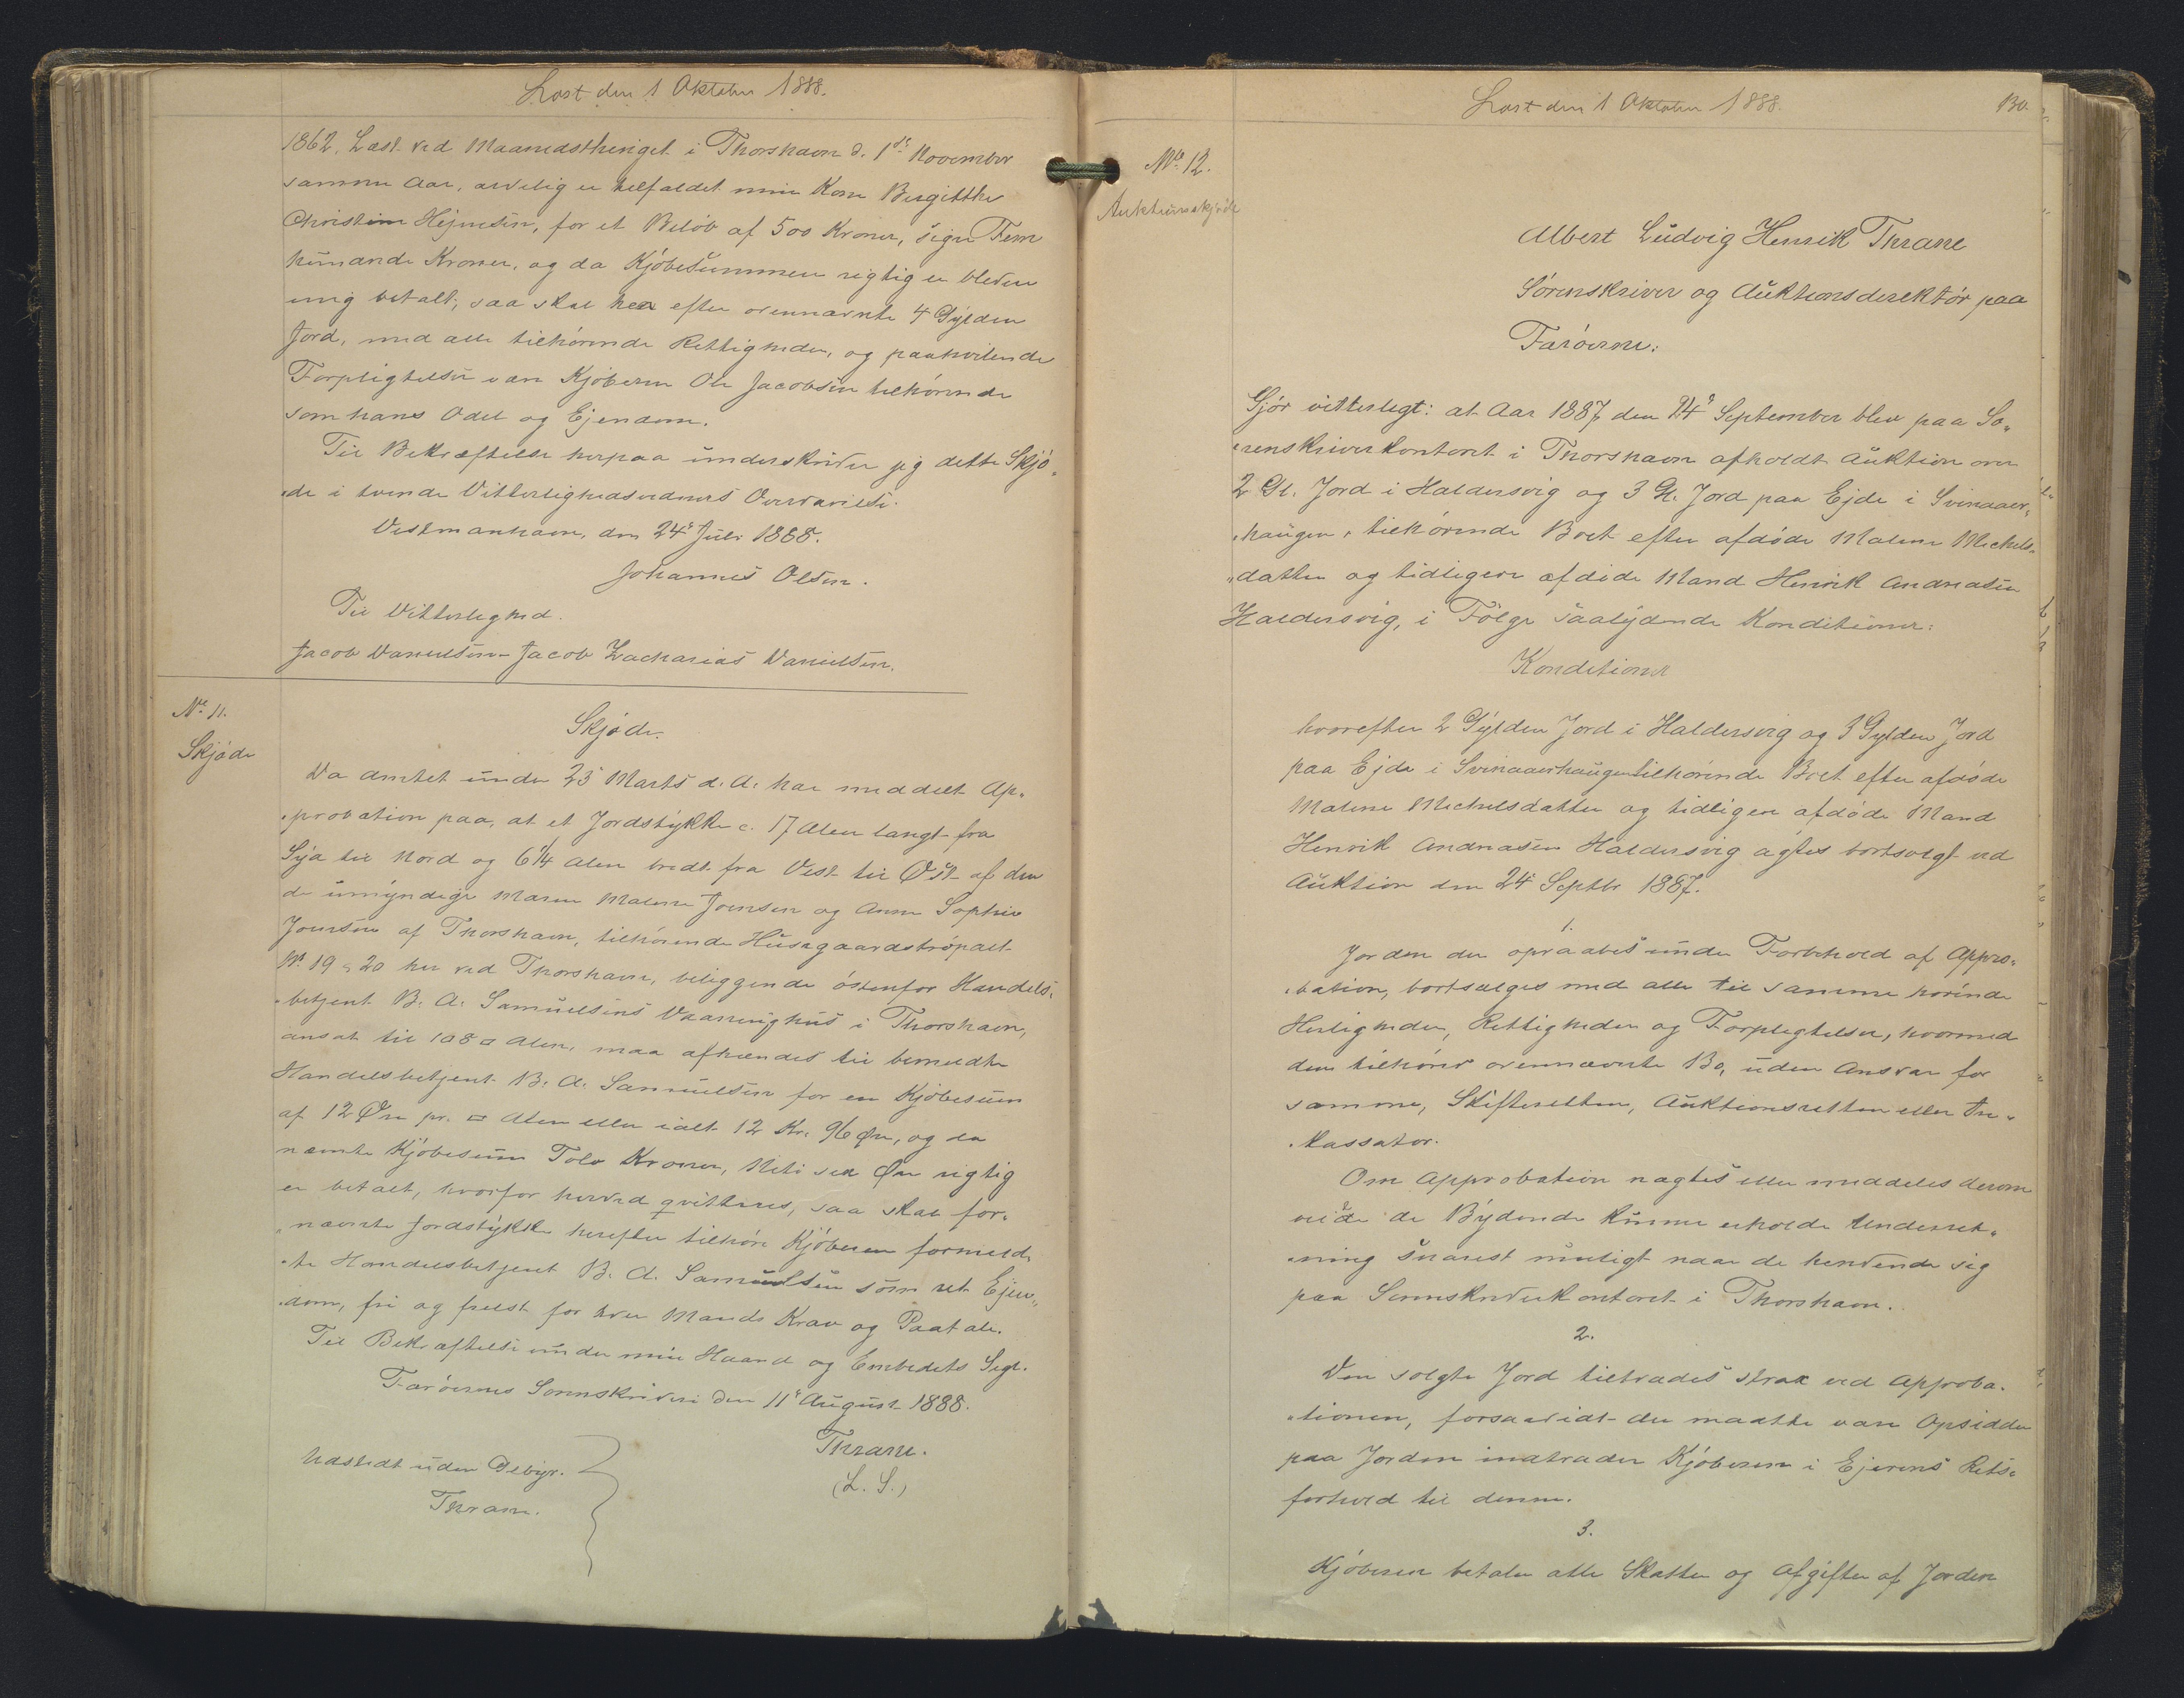 Læst den 1 Oktober 1888.
1862. Læst ved Maanedsthinget i Thorshavn d. 1ste November
samme Aar, arvelig er tilfaldet min Kone Birgitthe
Christine Hejnesen, for et Beløb af 500 Kroner, siger Fem
hundrede Kroner, og da Kjøbesummen rigtig er bleven
mig betalt, saa skal her efter ovennævnte 4 Gylden
Jord, med alle tilhørende Rettigheder, og paahvilende
Forpligtelser være Kjøberen Ole Jacobsen tilhørende
som hans Odel og Ejendom.
Til Bekræftelse herpaa underskriver jeg dette Skjø-
de i tvende Vitterlighedsvidners Overværelse.
Vestmanhavn, den 24de Juli 1888.
Johannes Olsen.
Til Vitterlighed.
Jacob Danielsen - Jacob Zacharias Danielsen.
No. 11.
Skjøde
Skjøde.
Da Amtet under 25 Marts d. A. har meddelt Ap-
probation paa, at et Jordstykke c. 17 Alen langt fra
Syd til Nord og 6 1/4 Alen bredt fra Vest til Øst af den
de umyndige Maren Malene Joensen og Anne Sophie
Joensen af Thorshavn, tilhørende Husegaardstrøpalt
No. 19 & 20 her ved Thorshavn, beliggende østenfor Handels-
betjent B. A. Samuelsens Vaaninghus i Thorshavn,
ansat til 108 □ Alen, maa afhændes til bemeldte
Handelsbetjent B. A. Samuelsen for en Kjøbesum
af 12 Øre pr. □ Alen eller ialt 12 Kr. 96 Øre, og da
nævnte Kjøbesum Tolv Kroner, Niti sex Øre rigtig
er betalt, hvorfor herved qvitteres, saa skal for-
nævnte Jordstykke herefter tilhøre Kjøberen formeld-
te Handelsbetjent B. A. Samuelsen som ret Ejen-
dom, fri og frelst for hver Mands Krav og Paatale.
Til Bekræftelse under min Haand og Embedets Segl.
Færøernes Sorenskriveri den 11te August 1888.
Thrane.
(L. S.)
Udstedt uden Gebyr.
Thrane.
Læst den 1 Oktober 1888.
130.
No. 12.
Auktionsskjøde
Albert Ludvig Henrik Thrane
Sorenskriver og Auktionsdirektør paa
Færøerne:
Gjør vitterligt: at Aar 1887 den 24de September blev paa So-
renskriverkontoret i Thorshavn afholdt Auktion over
2 Gl. Jord i Haldersvig og 3 Gl. Jord paa Ejde i Svinaaer-
haugen, tilhørende Boet efter afdøde Malene Michels-
datter og tidligere afdøde Mand Henrik Andreasen
Haldersvig, i Følge saalydende Konditioner:
Konditioner
hvorefter 2 Gylden Jord i Haldersvig og 3 Gylden Jord
paa Ejde i Svinaaerhaugen tilhørende Boet efter afdøde
Malene Michelsdatter og tidligere afdøde Mand
Henrik Andreasen Haldersvig agtes bortsolgt ved
Auktion den 24de Septbr 1887.
1.
Jorden der opraabes under Forbehold af Appro-
bation, bortsælges med alle til samme hørende
Herligheder, Rettigheder og Forpligtelser, hvormed
den tilhører ovennævnte Bo, uden Ansvar for
samme, Skifteretten, Auktionsretten eller In-
kassator.
Om Approbation nægtes eller meddeles derom
ville de Bydende kunne erholde Underret-
ning snarest muligt naar de henvende sig
paa Sorenskriverkontoret i Thorshavn.
2.
Den solgte Jord tiltrædes strax ved Approba-
tionen, forsaavidt der maatte være Opsidder
paa Jorden indtræder Kjøberen i Ejerens Rets-
forhold til denne.
3.
Kjøberen betaler alle Skatter og Afgifter af Jorden